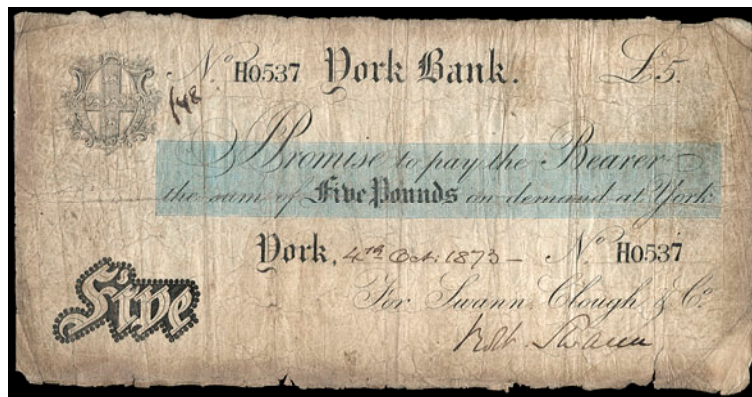 No H0537 York Bank. £5.
148
I Promise to pay the Bearer
the sum of Five Pounds on demand at York.
York, 4th Oct. 1873 – No H0537
For Swann, Clough & Co.
Five
Robt. Swann